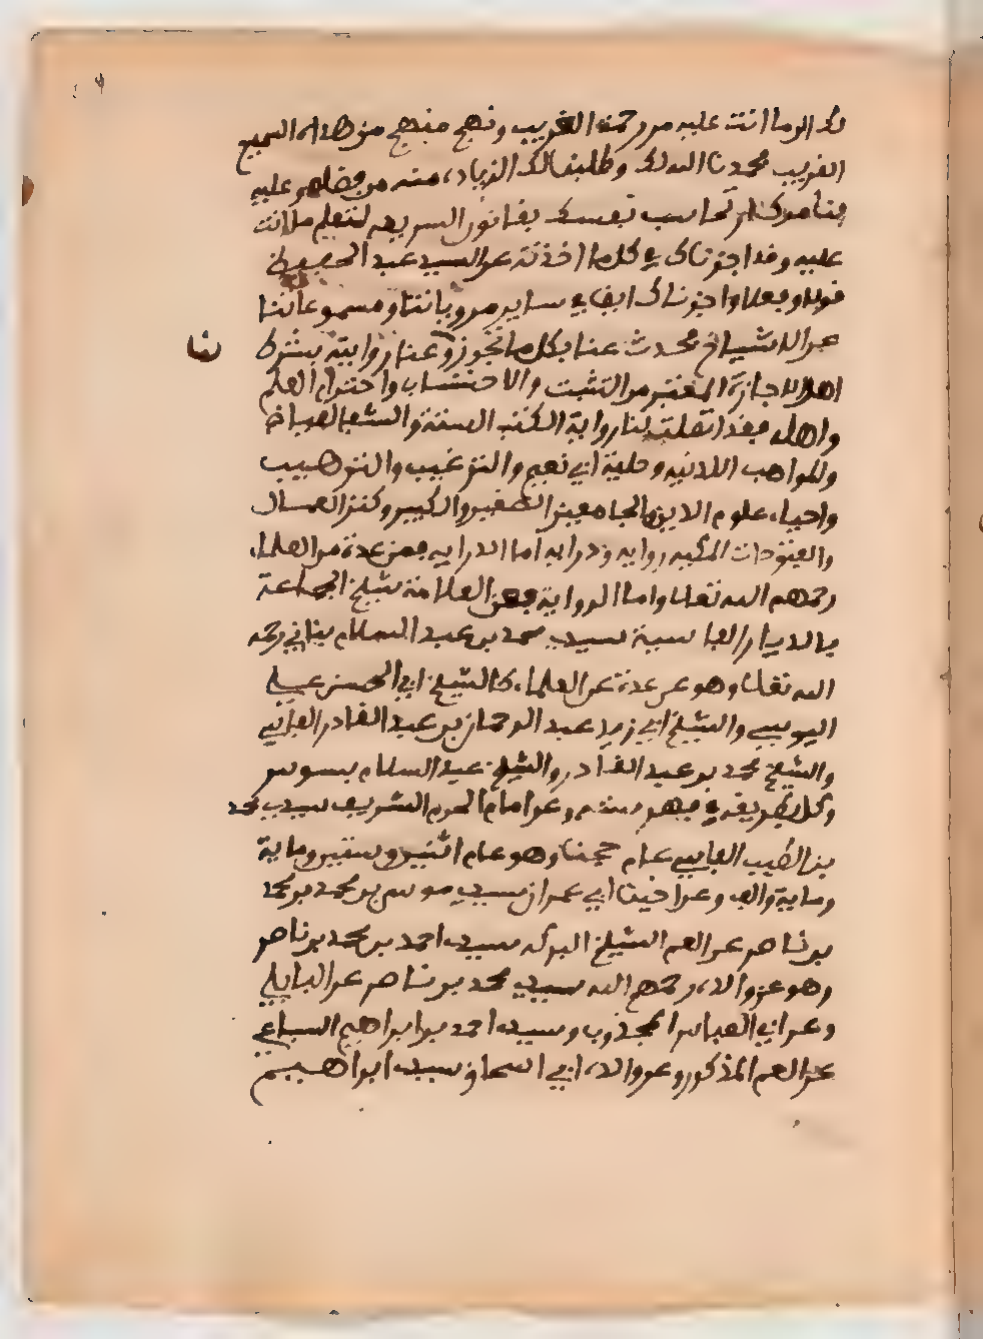 لك الى ما انت عليه من رحمة الغريب ونهج منهج من هداه السميع
القريب محمدنا الله لك وطلبنا لك الزيادة منه من فضله عليه
تحاسب نفسك بقانون الشريعة لتعلم ما انت
عليه وقد اجزناك في كل ما اخذته عن السيد عبد الحفيظ
قولا وفعلا واجزناك ايضا في ساير مروياتنا ومسموعاتنا
عن الاشياخ فحدث عنا بكل ما تجوز عنا روايته بشرط
نا
اهل الاجازة المعتبر من التثبت والاحتساب واحترام العلم
واهله فقد اتصلت لنا رواية الكتب الستة والشفا لعياض
والمواهب اللدنية وحلية ابي نعيم والترغيب والترهيب
واحياء علوم الدين والجامعين الصغير والكبير وكنز العمال
والفتوحات المكية رواية ودراية اما الدراية فعن عدة من العلماء
رحمهم الله تعالى واما الرواية فعن العلامة شيخ الجماعة
بالديار الفاسية سيدي محمد بن عبد السلام بناني رحمه
الله تعالى وهو عن عدة من العلماء كالشيخ ابي الحسن علي
اليوسي والشيخ ابي زيد عبد الرحمان بن عبد القادر الفاسي
والشيخ محمد بن عبد القادر والشيخ عبد السلام جسوس
وكل طريقه في فهرسته وعن امام الحرم الشريف سيدي محمد
بن الطيب الفاسي عام حجنا وهو عام اثنين وستين وماية
وماية والف وعن اخينا ابي عمران سيدي موسى بن محمد بن محمد
بن ناصر عن العم الشيخ البركة سيدي احمد بن محمد بن ناصر
وهو عن والده رحمهم الله سيدي محمد بن ناصر عن البابلي
وعن ابي العباس المجذوب وسيدي احمد بن ابراهيم السباعي
عن العم المذكور وعن والده ابي اسحاق سيدي ابراهيم